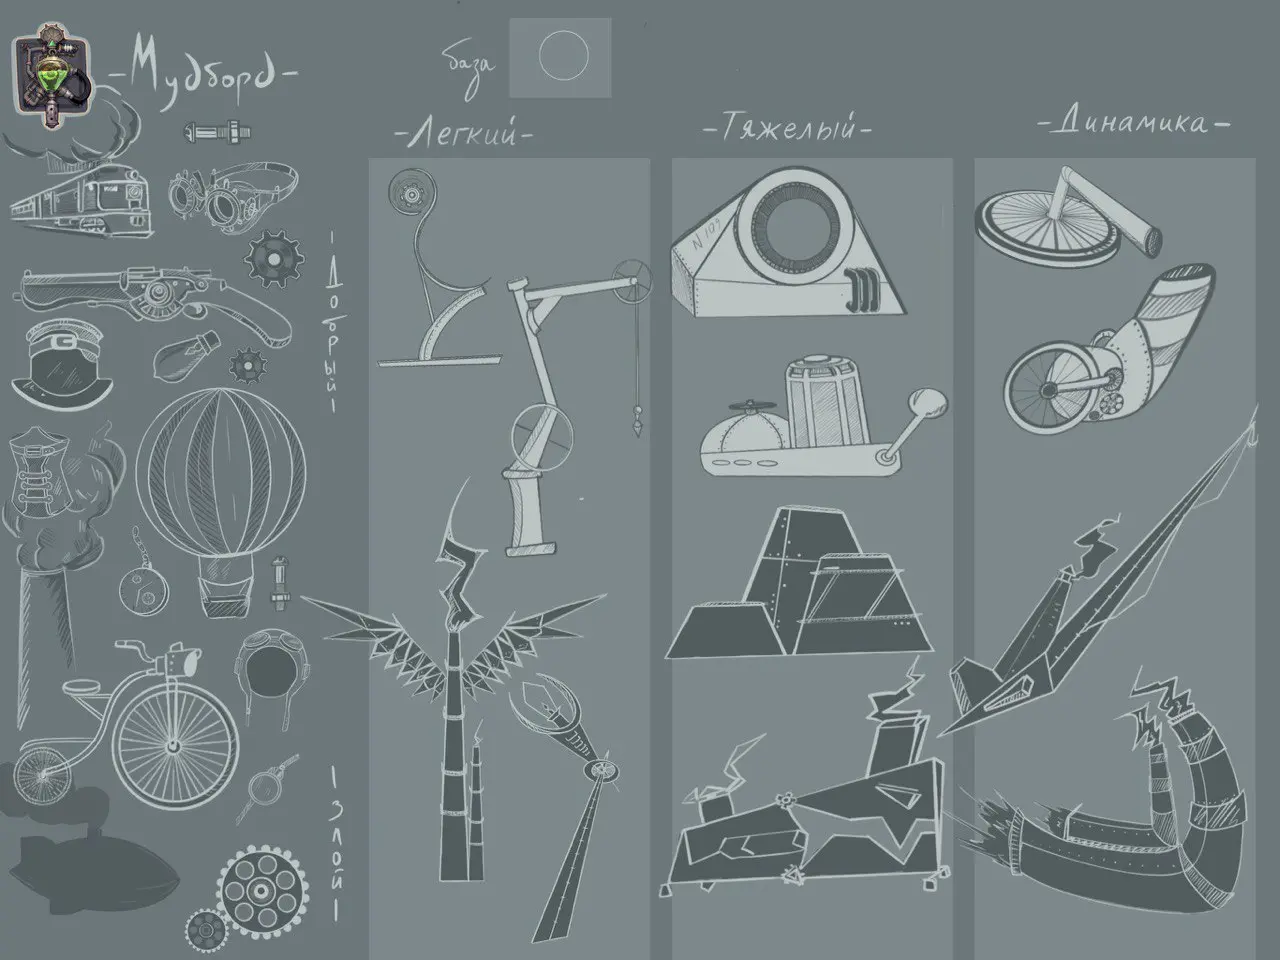 -Мудборд-
база
-Легкий-
-Тяжелый-
-Динамика-
-Добрый-
N 109
-Злой-